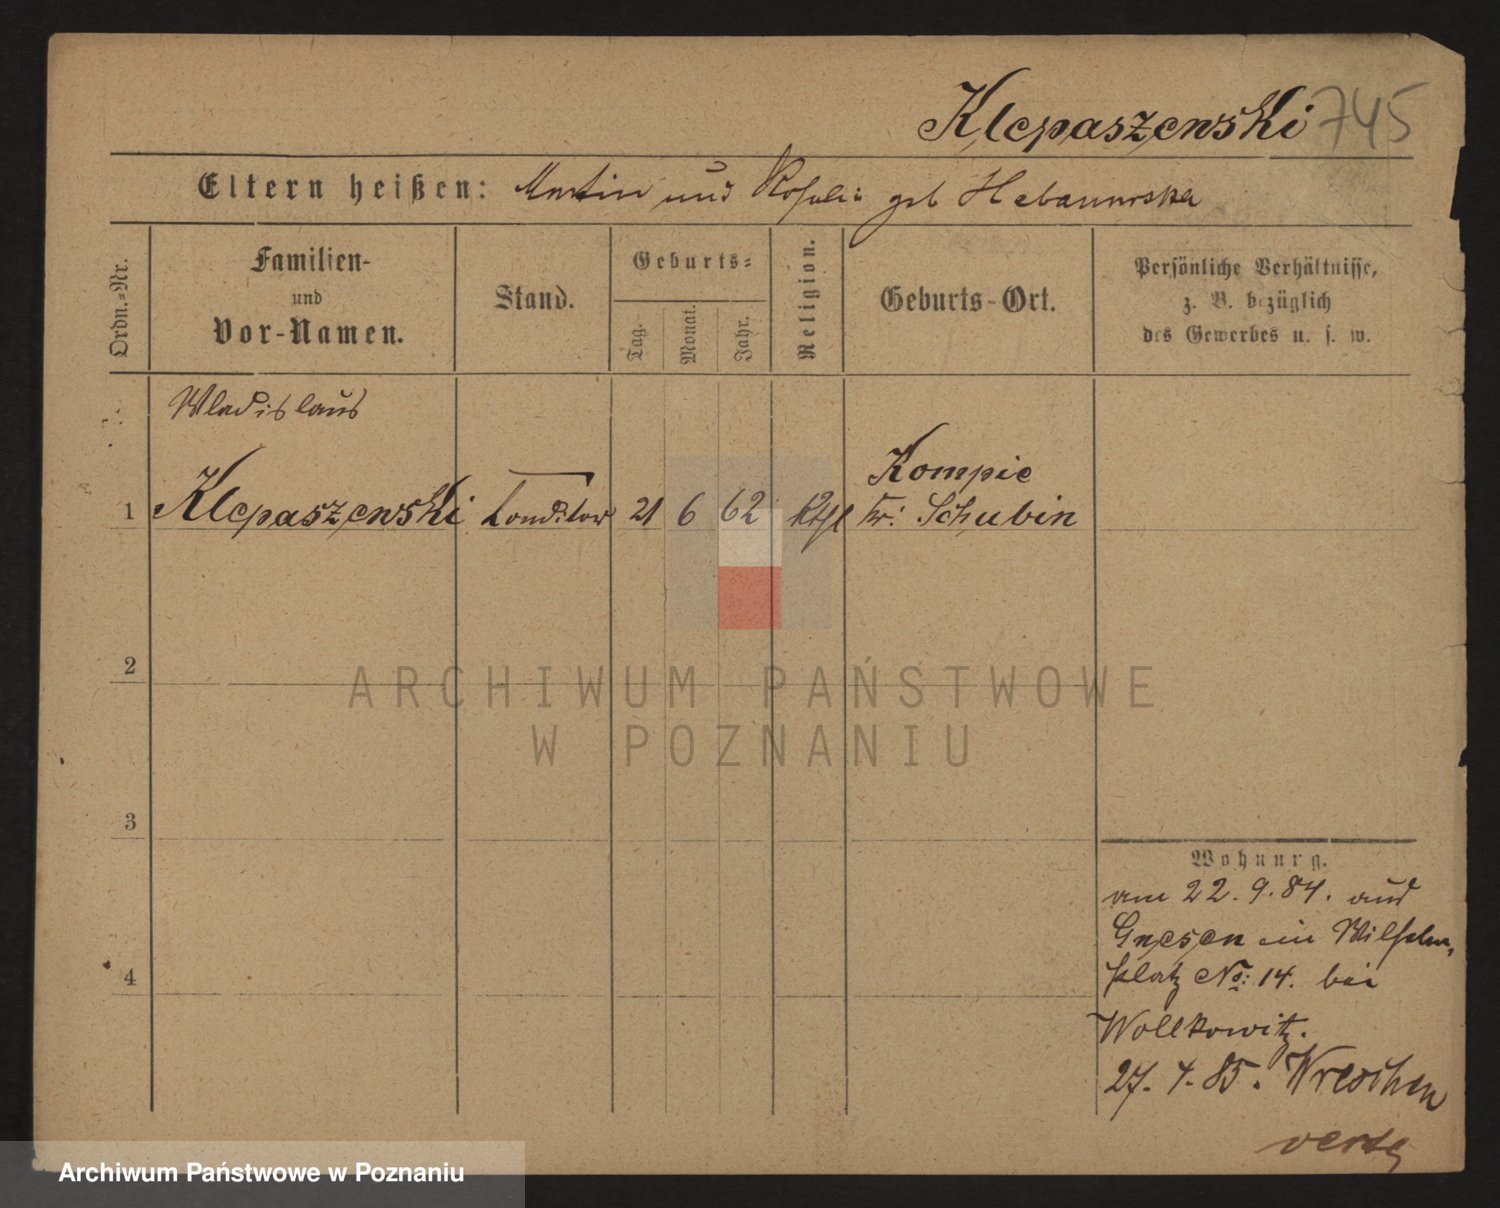 Klepaszewski 745
Eltern heißen: Martin und Rosalie geb
Ordn.-Nr.
Familien-
und
Vor-Namen.
Stand.
Geburts-
Tag.
Monat.
Jahr.
Religion.
Geburts-Ort.
Persönliche Verhältnisse,
z. B. bezüglich
des Gewerbes u. s. w.
Wladislaus
1 Klepaszewski Conditor 21 6 62 kthl Kompie
Kr: Schubin
2
ARCHIWUM PAŃSTWOWE
W POZNANIU
3
4
Wohnung.
am 22. 9. 84. aus
Gnesen ein Wilhelm
platz No: 14. bei
Wollkowitz.
27. 4. 85. Wreschen
verte
Archiwum Państwowe w Poznaniu